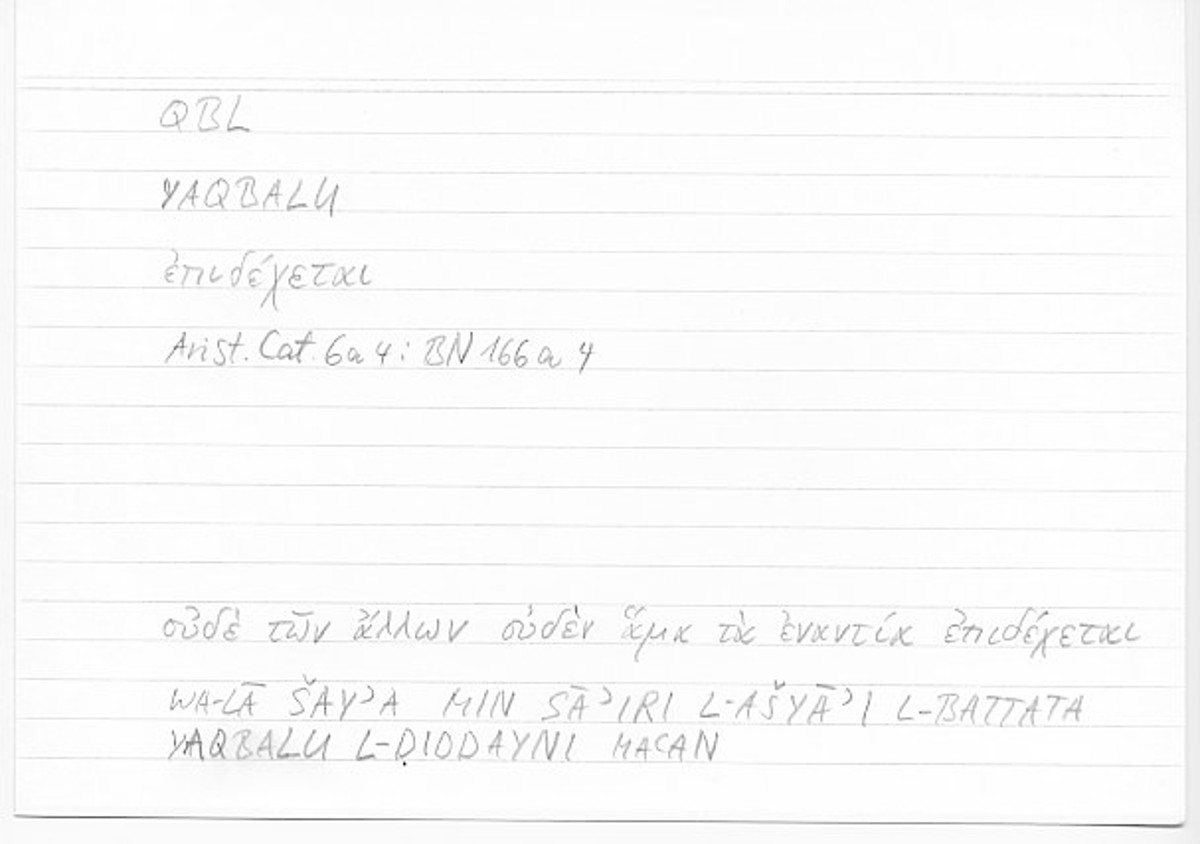 QBL
YAQBALU
ἐπιδέχεται
Arist. Cat. 6a4: BN 166a4
οὐδὲ τῶν ἄλλων οὐδὲν ἅμα τὰ ἐναντία ἐπιδέχεται
WA-LĀ ŠAYʾA MIN SĀʾIRI L-AŠYĀʾI L-BATTATA
YAQBALU L-ḌIDDAYNI MAʿAN